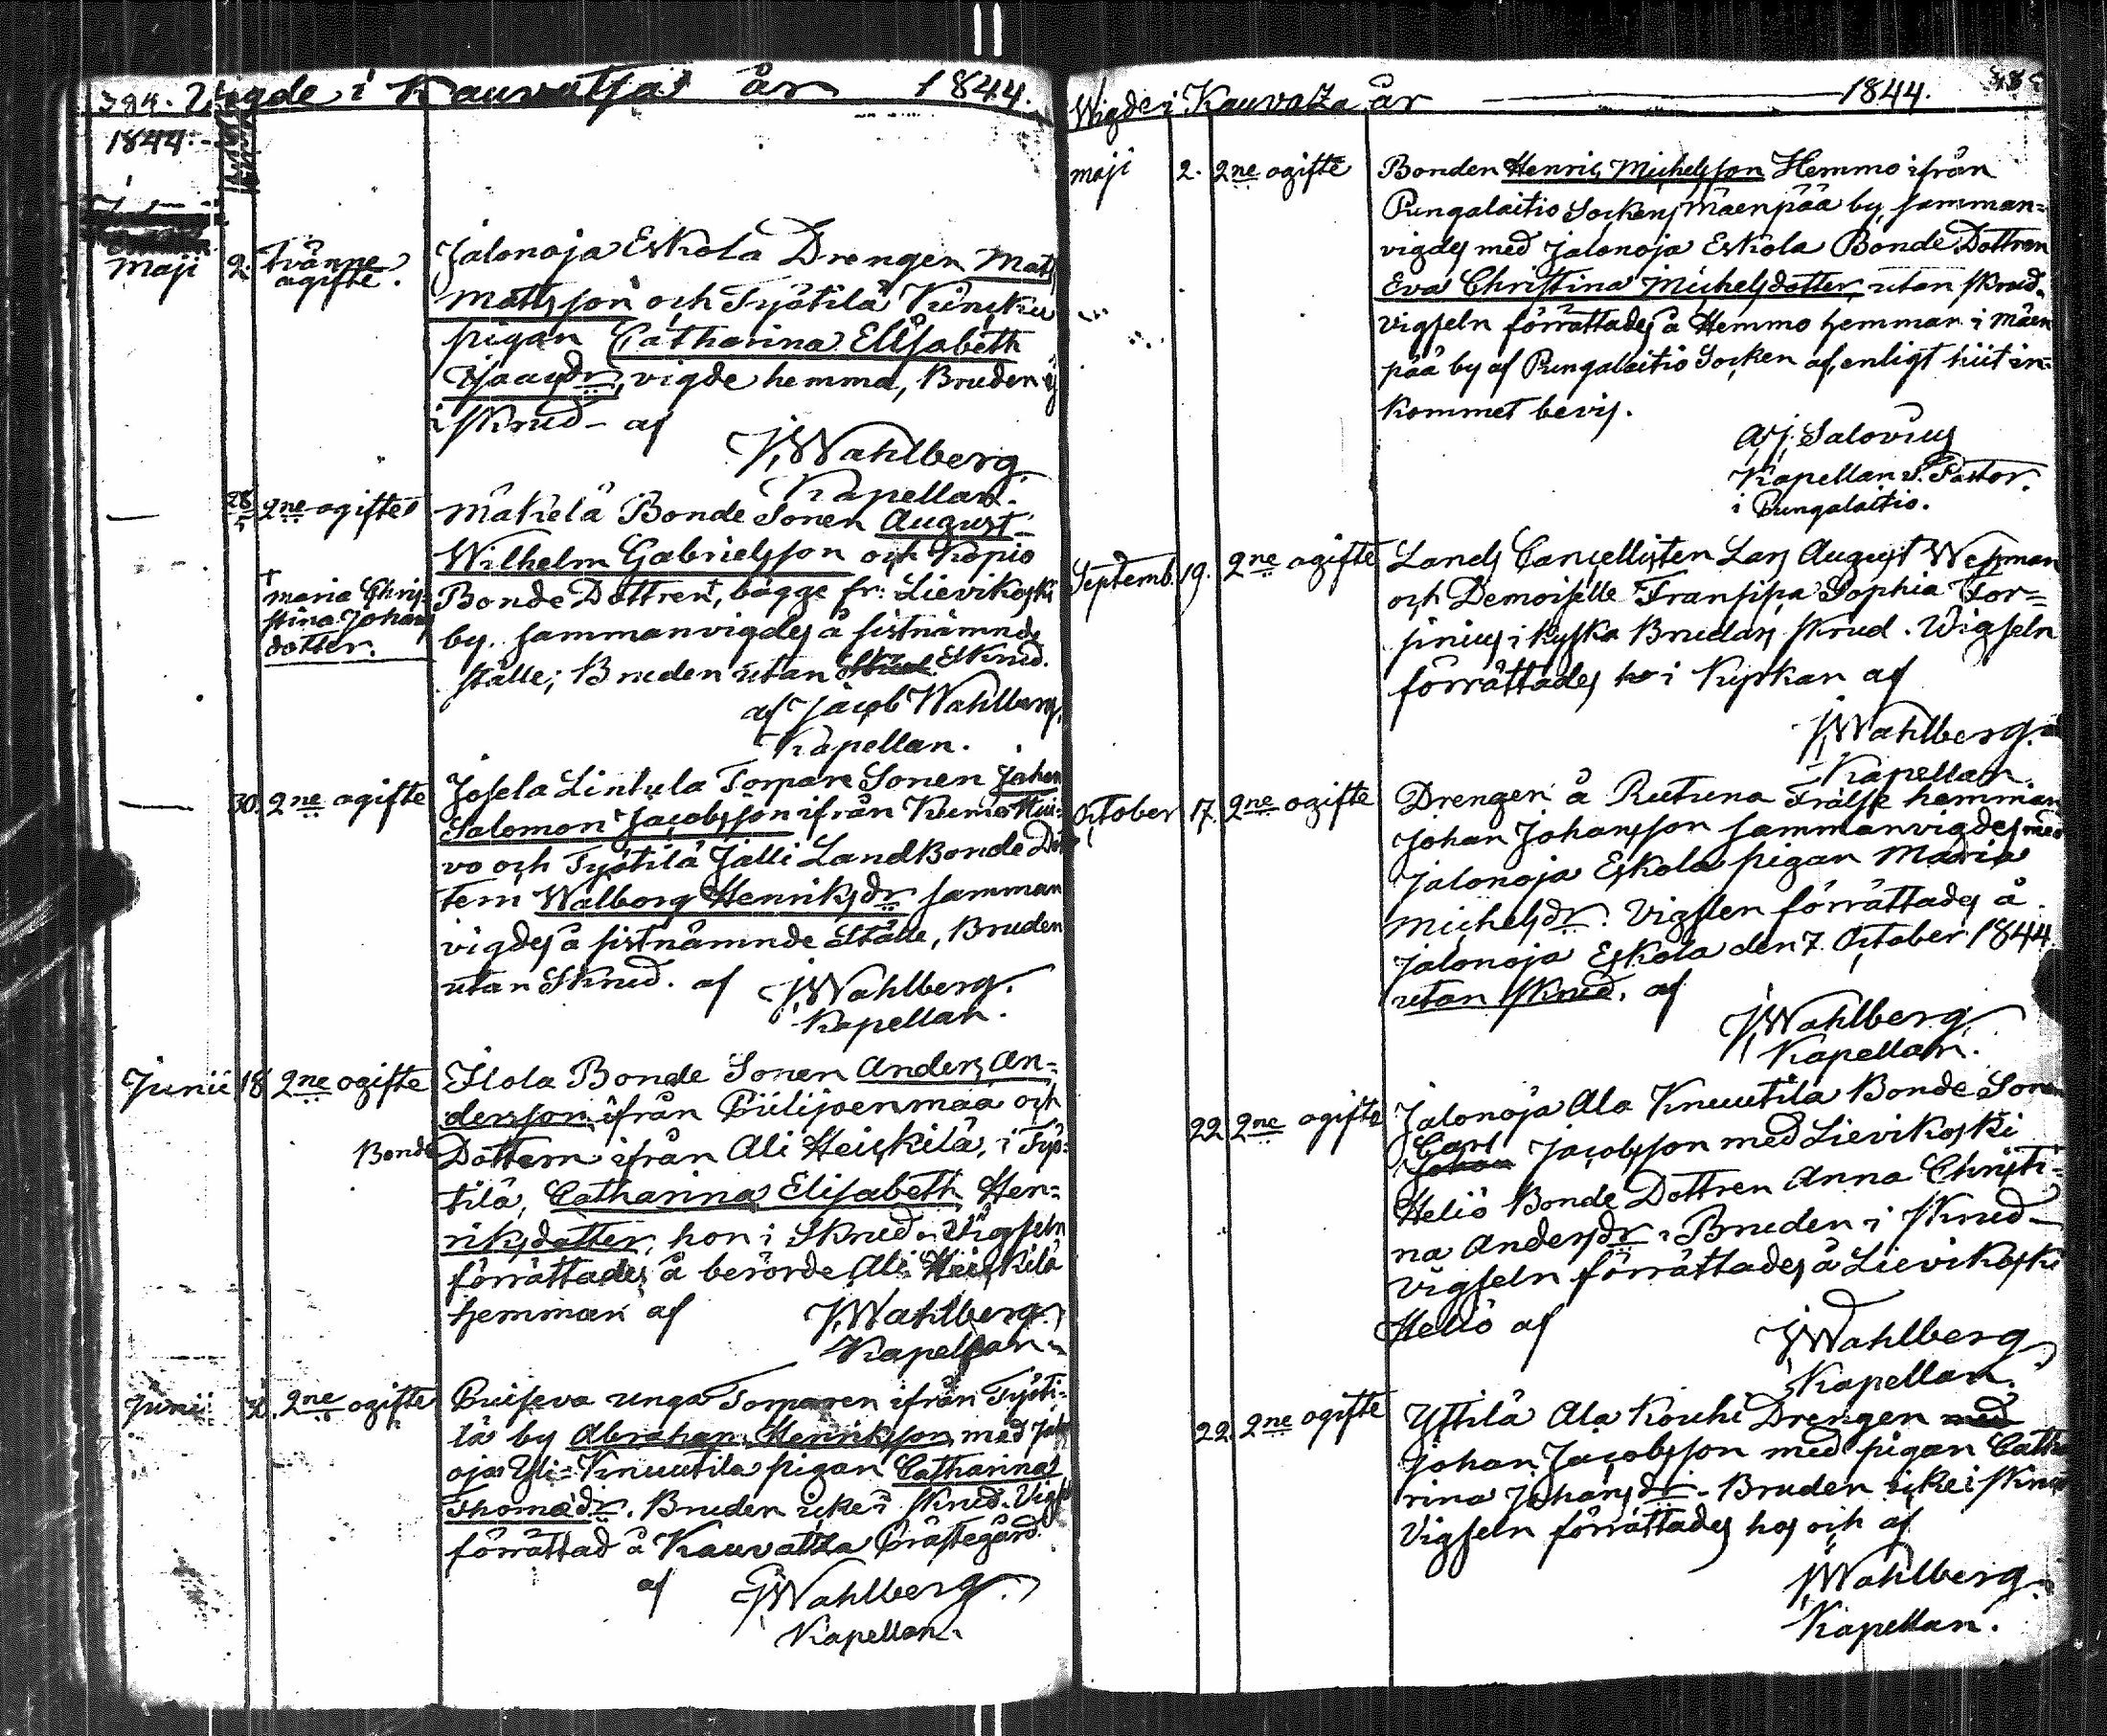 384. Vigde i Kauvatsa år 1844.
1844.
Maji 2. Tvänne ogifte. Jalonoja Eskola Drengen Mats
Mattsson och Työtilä Kinsku
pigan Catharina Elisabeth
Isaacsdr, vigde hemma, Bruden ej
i skrud - af
J. Wahlberg
Kapellan.
28/5 2ne ogifte Mäkelä Bonde Sonen August
Wilhelm Gabrielsson och Kopio
† Maria Chri-
stina Johans
dotter.
Bonde Dottren †, bägge fr: Lievikoski
by. sammanvigdes å sistnämnde
ställe; Bruden utan Skrud.
af Jacob Wahlberg,
Kapellan.
30. 2ne ogifte Josela Lintula Torpare Sonen Johan
Salomon Jacobsson ifrån Kumo
vo och Työtilä Jalli LandBonde Dot
tern Walborg Henriksdr samman
vigdes å sistnämnde ställe, Bruden
utan Skrud. af J. Wahlberg.
Kapellan.
Junii 18 2ne ogifte Ilola Bonde Sonen Anders An=
dersson ifrån Piilijoenmaa och
Bonde Dottern ifrån Ali Heiskilä, i Työ=
tilä, Catharina Elisabeth Hen=
riksdotter, hon i Skrud. Vigseln
förrättades å berörde Ali Heiskilä
hemman af J. Wahlberg.
Kapellan.
Junii 30. 2ne ogifte Puiseva unga Torparen ifrån Työti=
lä by Abraham Henriksson med Jalon
oja Yli=Knuutila pigan Catharina
Thomædr. Bruden icke i skrud. Vigs
förrättad å Kauvatsa Prästegård.
af J. Wahlberg.
Kapellan.
Wigde i Kauvatza år 1844. 385
Maji 2. 2ne ogifte Bonden Henric Michelsson Hemmo ifrån
Pungalaitio Sockens Mäenpää by, samman=
vigdes med Jalonoja Eskola Bonde Dottren
Eva Christina Michelsdotter, utan skrud.
Vigseln förrättades å Hemmo hemman i Mäen
pää by af Pungalaitio Socken af, enligt hiit in=
kommet bevis.
A. J. Salovius
Kapellan S. Pastor.
i Pungalaitio.
Septemb. 19. 2ne ogifte Lands Cancellisten Lars August Wessman
och Demoiselle Fransisca Sophia For=
sinius i kyska Brudars skrud. Wigseln
förrättades i Kyrkan af
J. Wahlberg.
Kapellan.
October 17. 2ne ogifte Drengen å Rutuna Frälse hemman
Johan Johansson sammanvigdes med
Jalonoja Eskola pigan Maria
Michelsdr. Vigslen förrättades å
Jalonoja Eskola den 7. October 1844.
utan skrud. af
J. Wahlberg
Kapellan.
22 2ne ogifte Jalonoja Ala Knuutila Bonde Sonen
Carl
Johan Jacobsson med Lievikoski
Heliö Bonde Dottren Anna Christi=
na Andersdr. Bruden i skrud -
Vigseln förrättades å Lievikoski
Heliö af
J. Wahlberg
Kapellan.
22. 2ne ogifte Yttilä Ala Kouhi Drengen med
Johan Jacobsson med pigan Catha
rina Johansdr. Bruden icke i skrud
Vigseln förrättades hos och af
J. Wahlberg.
Kapellan.